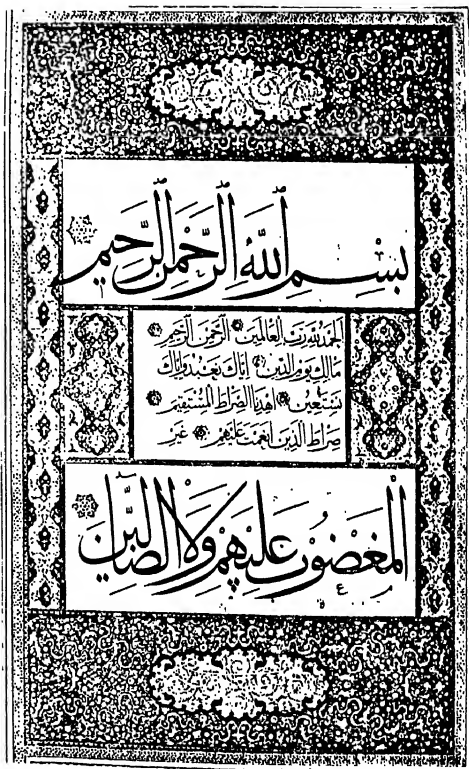 بِسْمِ اللَّهِ الرَّحْمَٰنِ الرَّحِيمِ
الحمد لله رب العالمين الرحمن الرحيم
مالك يوم الدين إياك نعبد وإياك
نستعين اهدنا الصراط المستقيم
صراط الذين أنعمت عليهم غير
المغضوب عليهم ولا الضالين